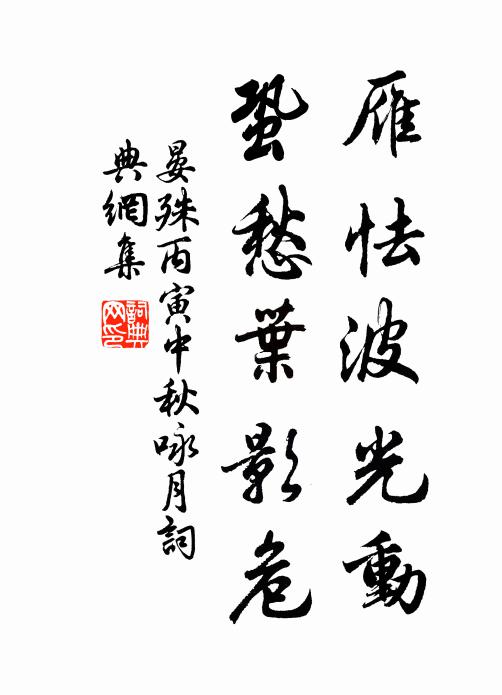 雁怯波光動
蛩愁葉影危
晏殊丙寅中秋咏月詞
典網集
詞典
网印